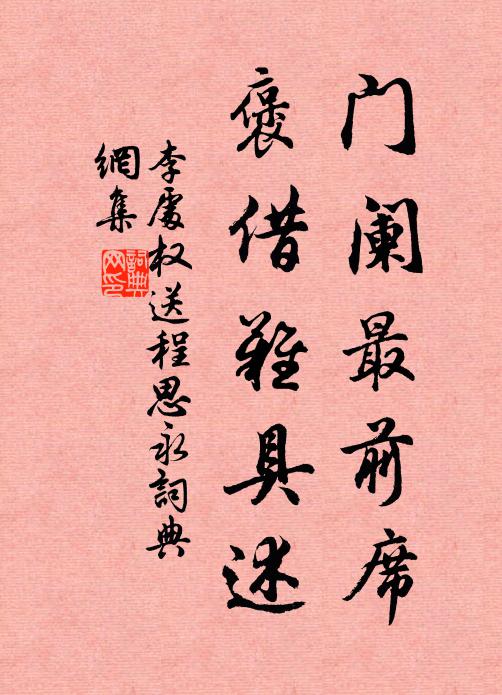 门阑最前席
褒借难具述
李處权送程思永詞典
網集
詞典网印